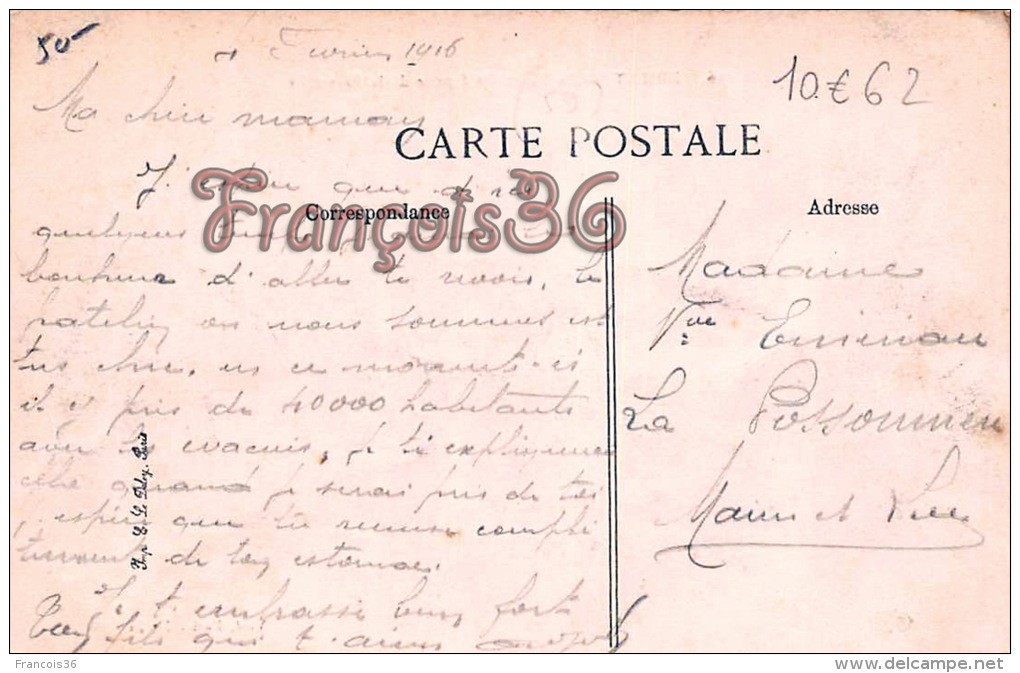 50
Février 1916
10€62
Ma chère maman
CARTE POSTALE
J'espère que
François36
Correspondance
Adresse
quelques
bonheur d'aller te revoir, le
patelin ou nous sommes est
très chic, en ce moment-ci
il y près de 40000 habitants
avec les évacués, je t'expliquerai
cela quand je serai près de toi
j'espère que tu remise complè
tement de ton estomac.
Je t'embrasse bien fort
Ton fils qui t'aime
Imp. E. Le Deley, Paris
Madame
Vve
La Possonnière
Maine et Loire
Francois36
www.delcampe.net